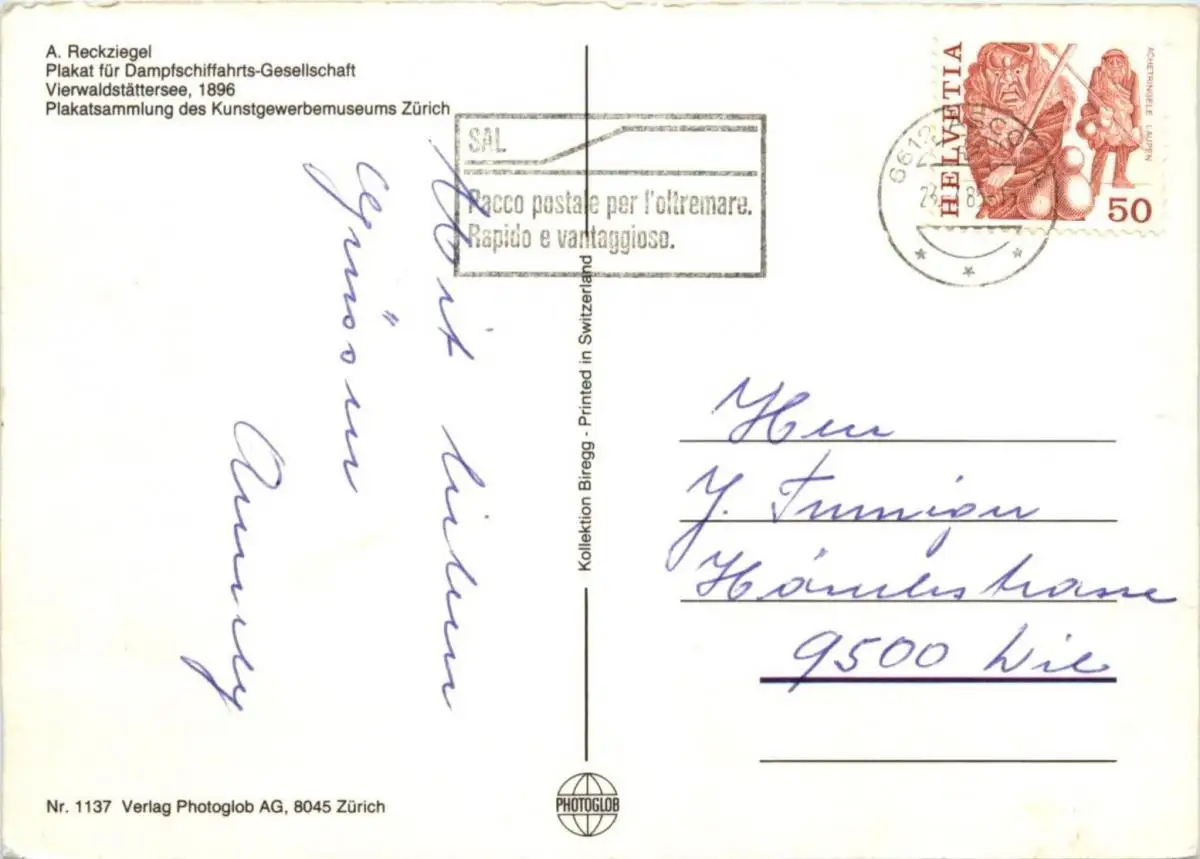 A. Reckziegel
Plakat für Dampfschiffahrts-Gesellschaft
Vierwaldstättersee, 1896
Plakatsammlung des Kunstgewerbemuseums Zürich
SAL
Pacco postale per l'oltremare.
Rapido e vantaggioso.
HELVETIA
ACHETRINGELE LAUPEN
50
6612
Mit lieben
Grüssen
Kollektion Biregg - Printed in Switzerland
Herr
J.
9500 Wil
Nr. 1137 Verlag Photoglob AG, 8045 Zürich
PHOTOGLOB